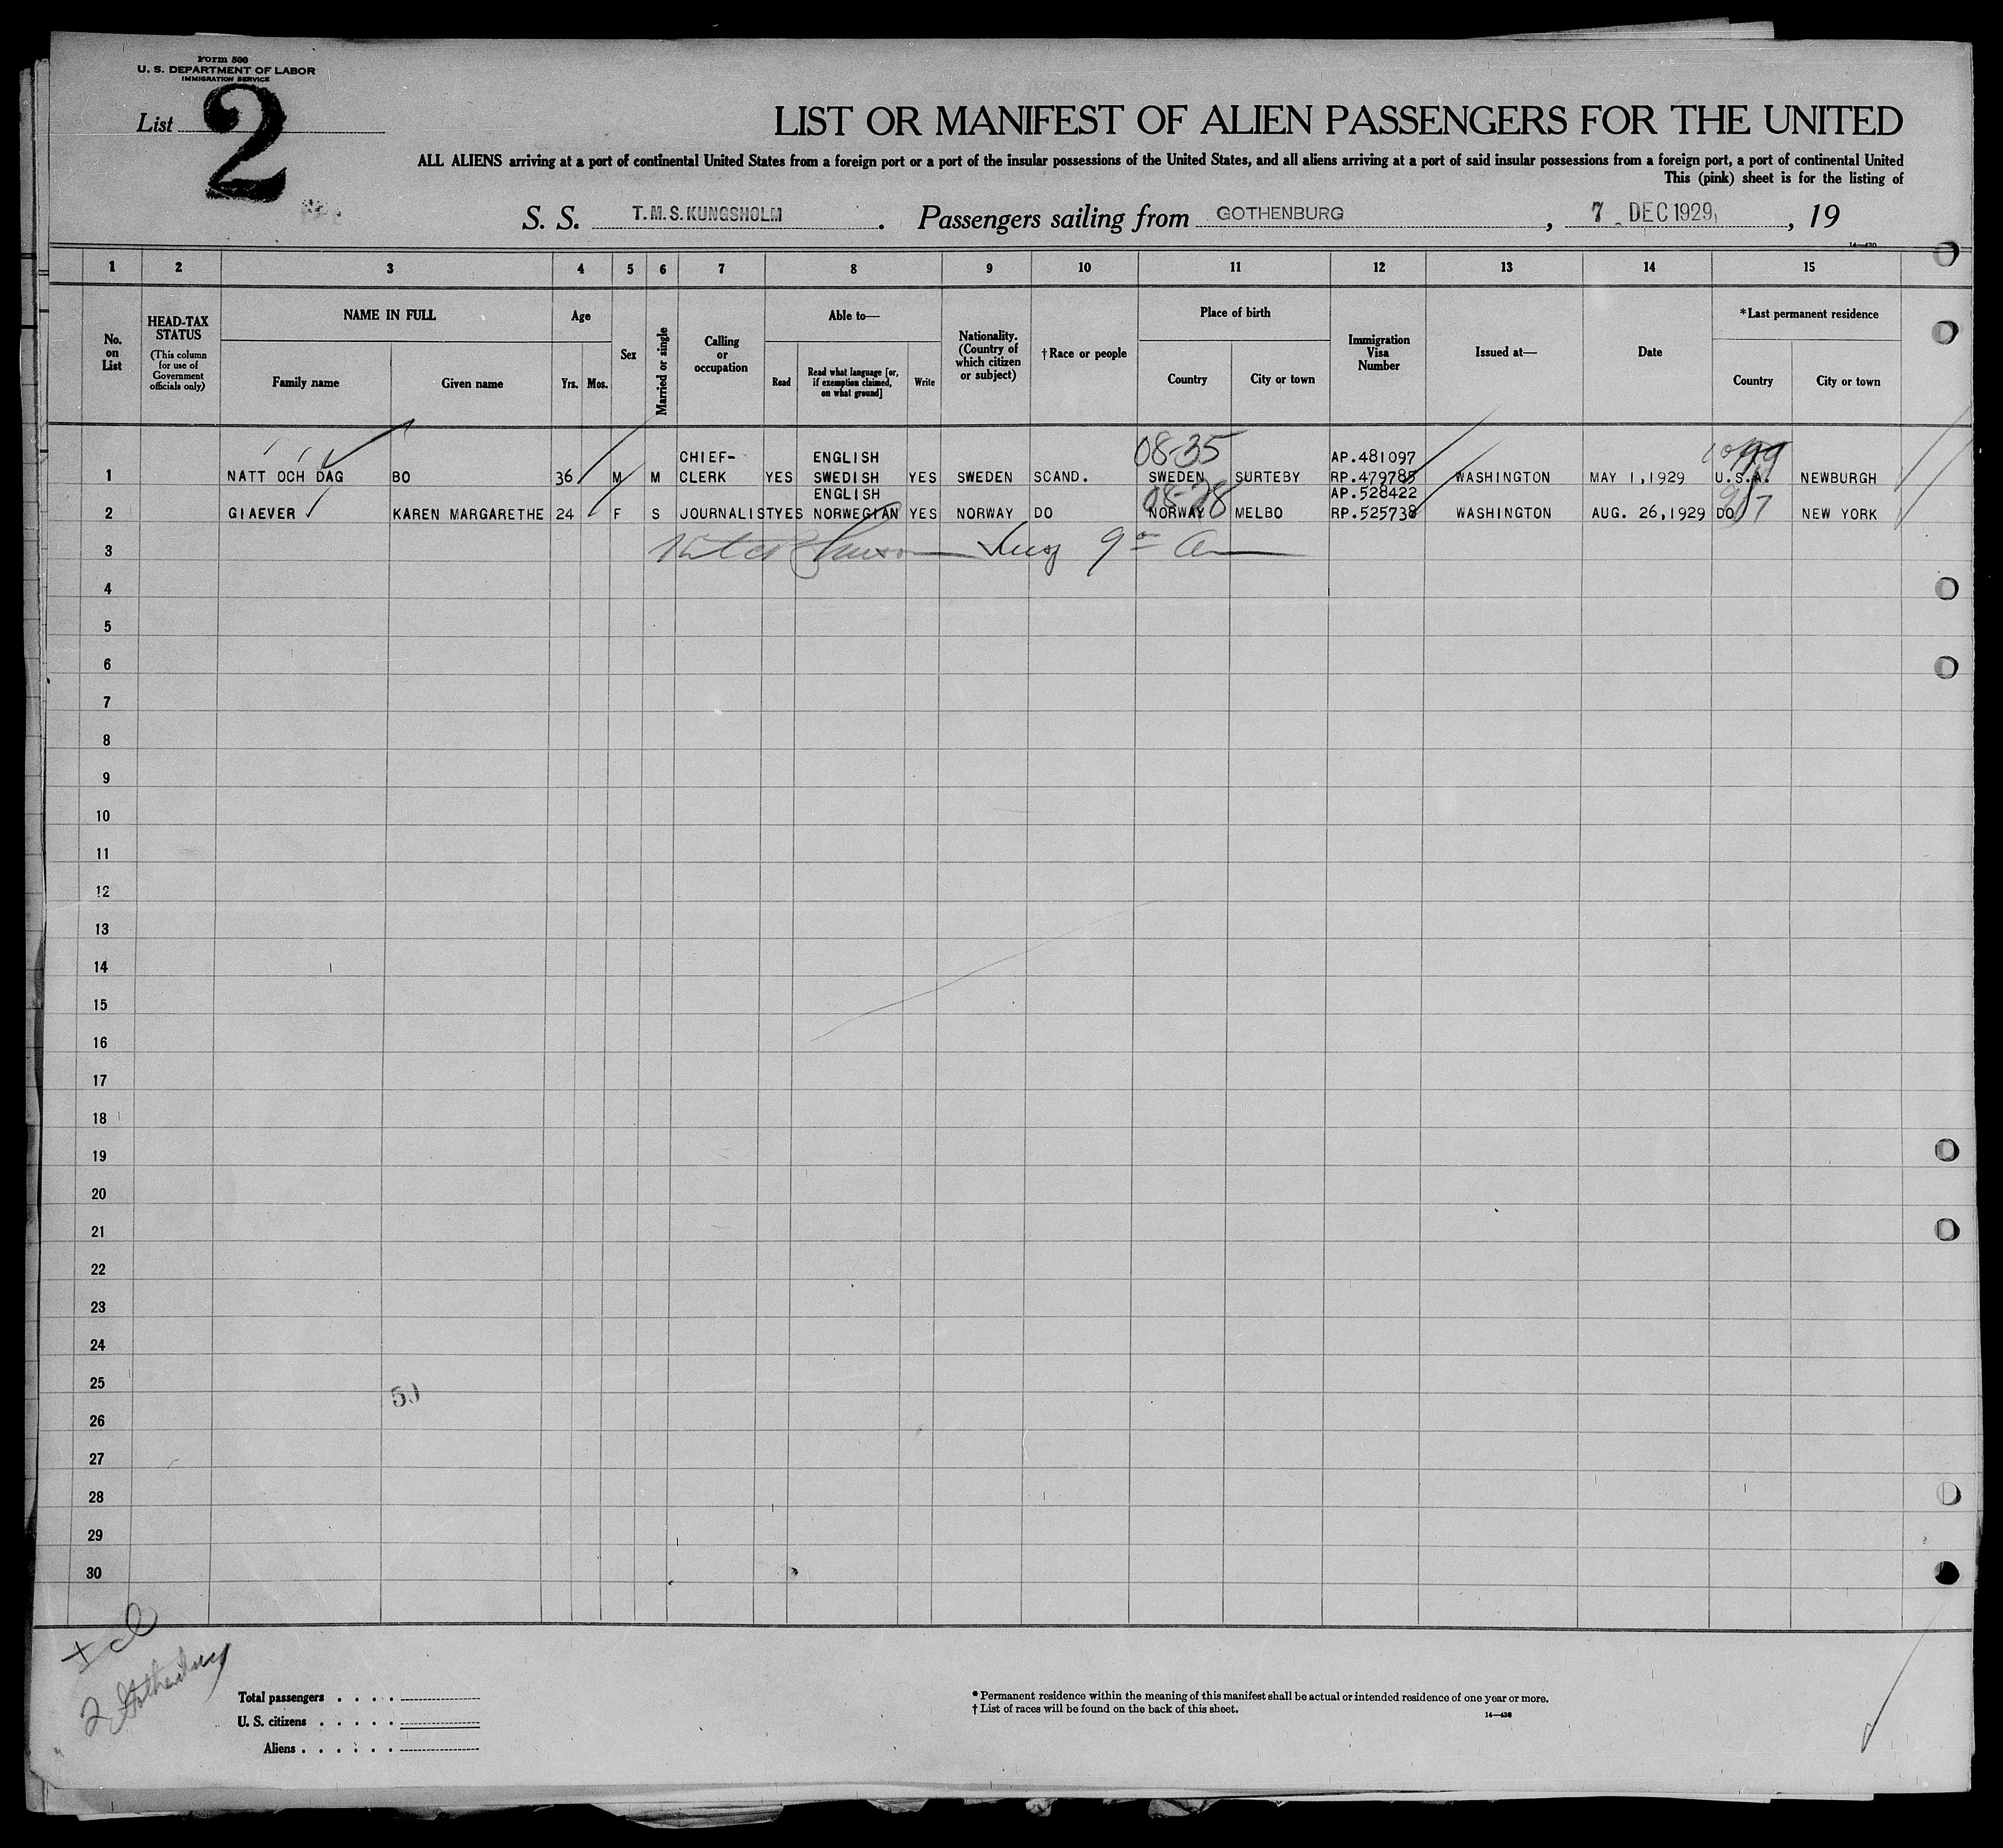 Form 500
U. S. DEPARTMENT OF LABOR
IMMIGRATION SERVICE
List 2
LIST OR MANIFEST OF ALIEN PASSENGERS FOR THE UNITED
ALL ALIENS arriving at a port of continental United States from a foreign port or a port of the insular possessions of the United States, and all aliens arriving at a port of said insular possessions from a foreign port, a port of continental United
This (pink) sheet is for the listing of
S. S. T.M.S.KUNGSHOLM. Passengers sailing from GOTHENBURG, 7 DEC 1929, 19
14—430
1 2 3 4 5 6 7 8 9 10 11 12 13 14 15
No. on List
HEAD-TAX STATUS (This column for use of Government officials only)
NAME IN FULL
Family name
Given name
Age
Yrs. Mos.
Sex
Married or single
Calling or occupation
Able to—
Read
Read what language [or, if exemption claimed, on what ground]
Write
Nationality. (Country of which citizen or subject)
†Race or people
Place of birth
Country
City or town
Immigration Visa Number
Issued at—
Date
*Last permanent residence
Country
City or town
08-35
CHIEF- ENGLISH AP.481097
1 NATT OCH DAG BO 36 M M CLERK YES SWEDISH YES SWEDEN SCAND. SWEDEN SURTEBY RP.479785 WASHINGTON MAY 1,1929 U.S.A. NEWBURGH
ENGLISH 08-28 AP.528422
2 GIAEVER KAREN MARGARETHE 24 F S JOURNALIST YES NORWEGIAN YES NORWAY DO NORWAY MELBO RP.525738 WASHINGTON AUG. 26,1929 DO NEW YORK
3
4
5
6
7
8
9
10
11
12
13
14
15
16
17
18
19
20
21
22
23
24
25
50
26
27
28
29
30
2 Gothenburg
Total passengers . . . .
U. S. citizens . . . . .
Aliens . . . . . .
* Permanent residence within the meaning of this manifest shall be actual or intended residence of one year or more.
† List of races will be found on the back of this sheet.
14—430